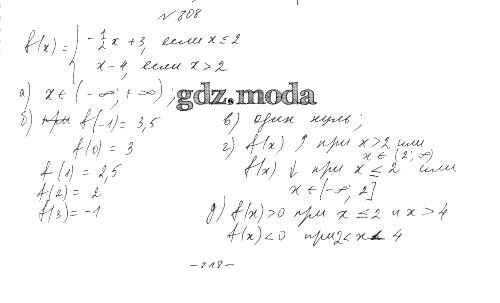 № 308
f(x) = { -1/2 x + 3, если x ≤ 2
x - 4, если x > 2
а) x ∈ (-∞; +∞);
gdz.moda
б) f(-1) = 3,5
f(0) = 3
f(1) = 2,5
f(2) = 2
f(3) = -1
в) один нуль;
г) f(x) ↑ при x > 2 или
x ∈ (2; ∞)
f(x) ↓ при x ≤ 2 или
x ∈ (-∞; 2]
д) f(x) > 0 при x ≤ 2 и x > 4
f(x) < 0 при 2 < x < 4
- 218 -